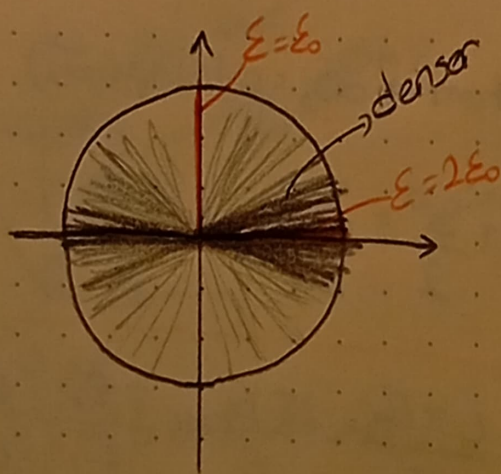 ε=ε₀
denser
ε=2ε₀